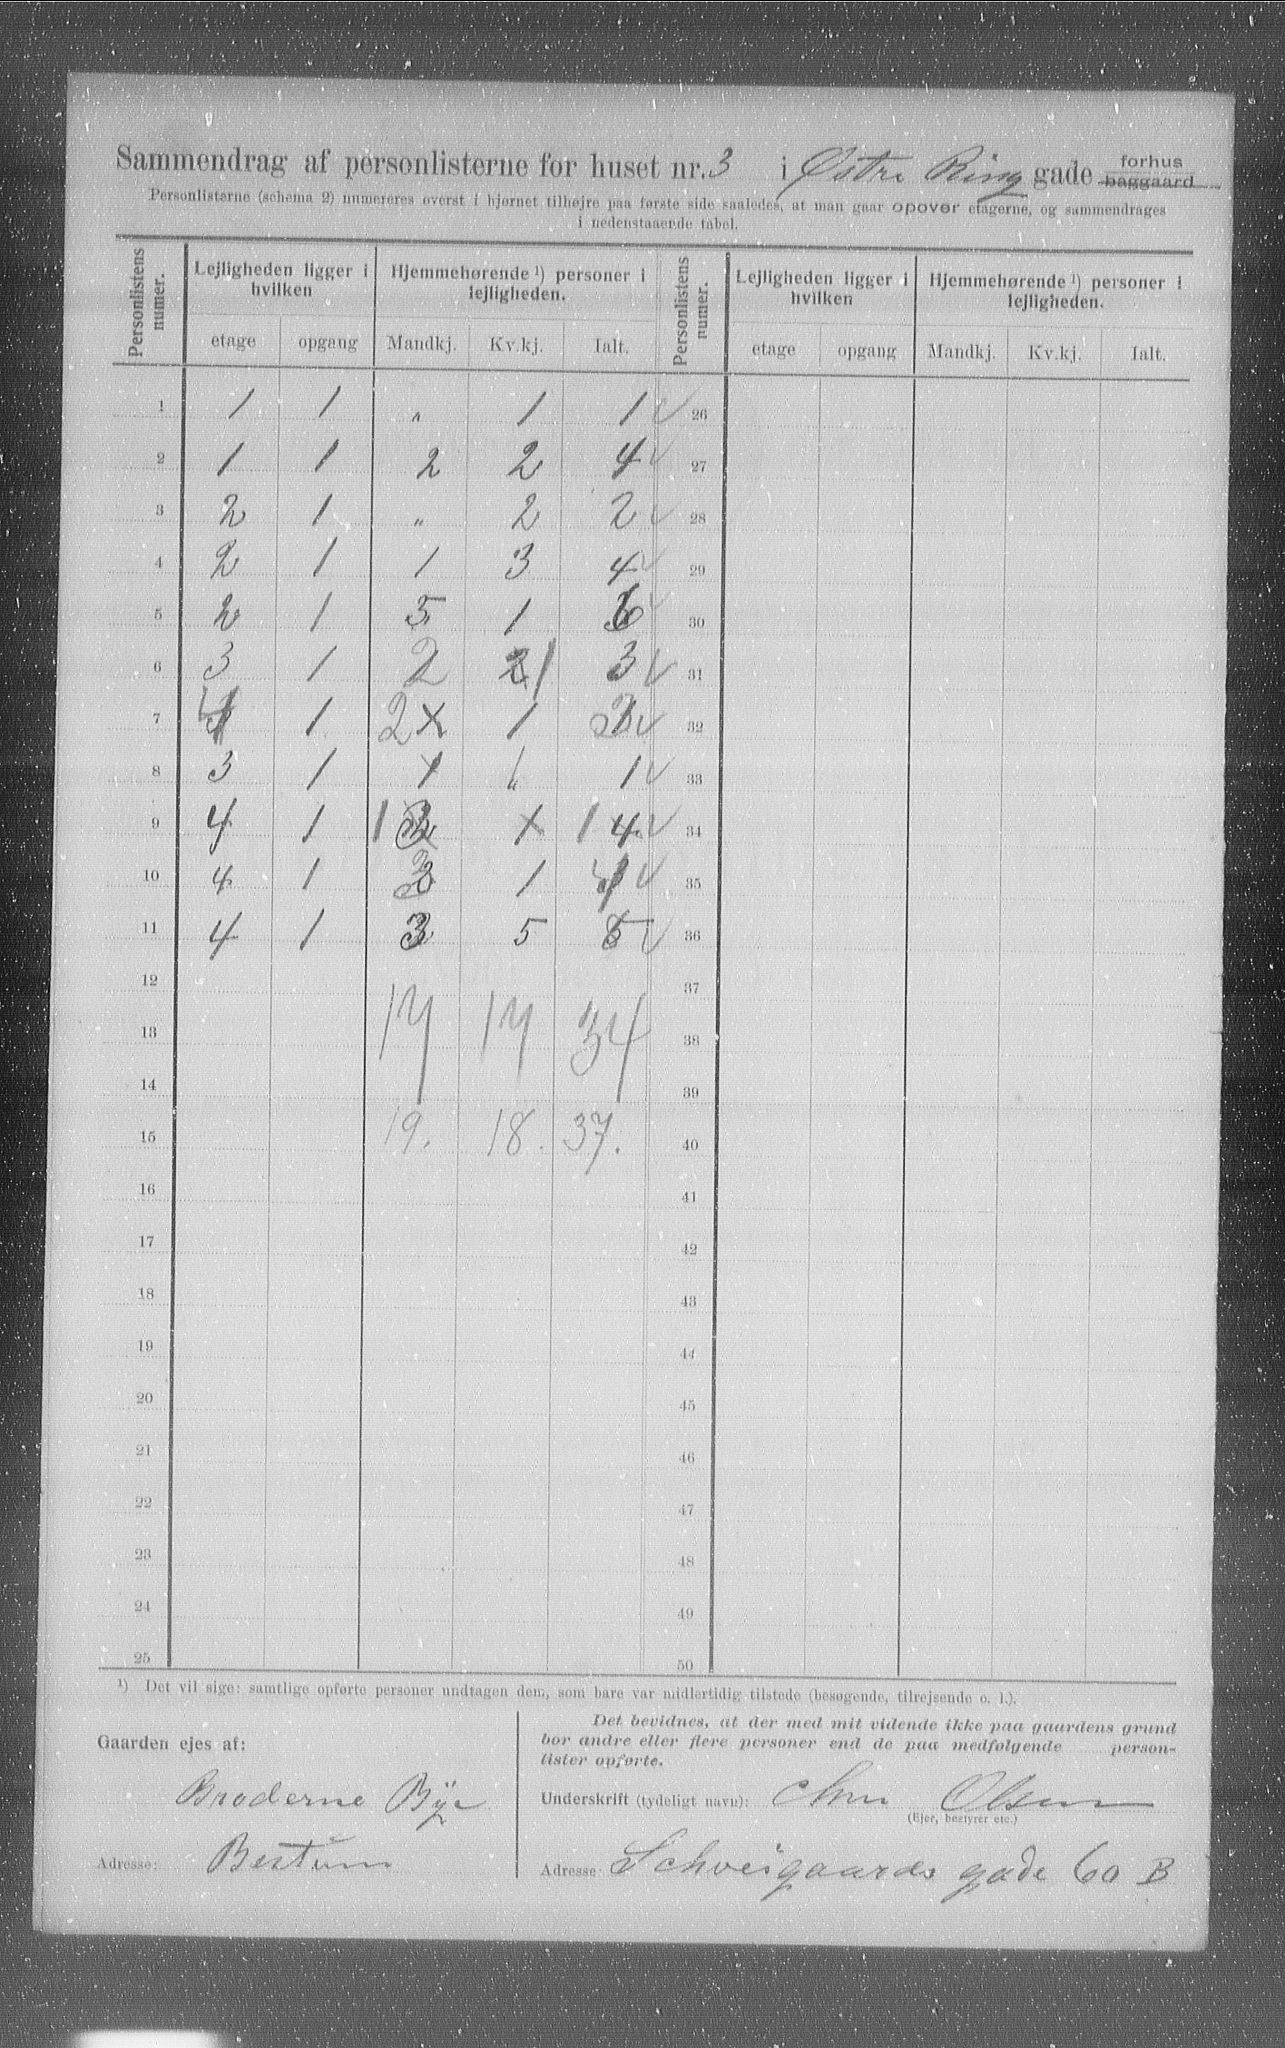 Sammendrag af personlisterne for huset nr. 3 i Østre Ring gade forhus baggaard
Personlisterne (schema 2) numereres øverst i hjørnet tilhøjre paa første side saaledes, at man gaar opover etagerne, og sammendrages
i nedenstaaende tabel.
Personlistens numer. Lejligheden ligger i hvilken Hjemmehørende ¹) personer i lejligheden. Personlistens numer. Lejligheden ligger i hvilken Hjemmehørende ¹) personer i lejligheden.
etage opgang Mandkj. Kv.kj. Ialt. etage opgang Mandkj. Kv.kj. Ialt.
1 1 1 „ 1 1 ✓ 26
2 1 1 2 2 4 ✓ 27
3 2 1 „ 2 2 ✓ 28
4 2 1 1 3 4 ✓ 29
5 2 1 5 1 6 ✓ 30
6 3 1 2 1 3 ✓ 31
7 1 2 1 3 ✓ 32
8 3 1 1 „ 1 ✓ 33
9 4 1 1 4 ✓ 34
10 4 1 3 1 4 ✓ 35
11 4 1 3 5 ✓ 36
12 37
13 17 17 34 38
14 39
15 19. 18. 37. 40
16 41
17 42
18 43
19 44
20 45
21 46
22 47
23 48
24 49
25 50
¹) Det vil sige: samtlige opførte personer undtagen dem, som bare var midlertidig tilstede (besøgende, tilrejsende o. l.).
Det bevidnes, at der med mit vidende ikke paa gaardens grund
bor andre eller flere personer end de paa medfølgende person-
lister opførte.
Gaarden ejes af:
Brøderne Bye
Adresse: Bestum
Underskrift (tydeligt navn): Chr. Olsen
(Ejer, bestyrer etc.)
Adresse: Schveigaards gade 60 B